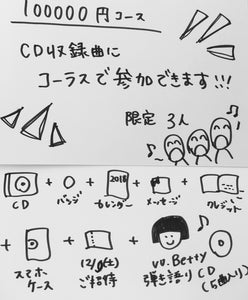 100000円コース
CD収録曲に
コーラスで参加できます!!!
限定 3人
2018
CD + バッジ + カレンダー + メッセージ + クレジット
+ スマホケース + 12/9(土)ご招待 + vo.Betty弾き語りCD(5曲入り)